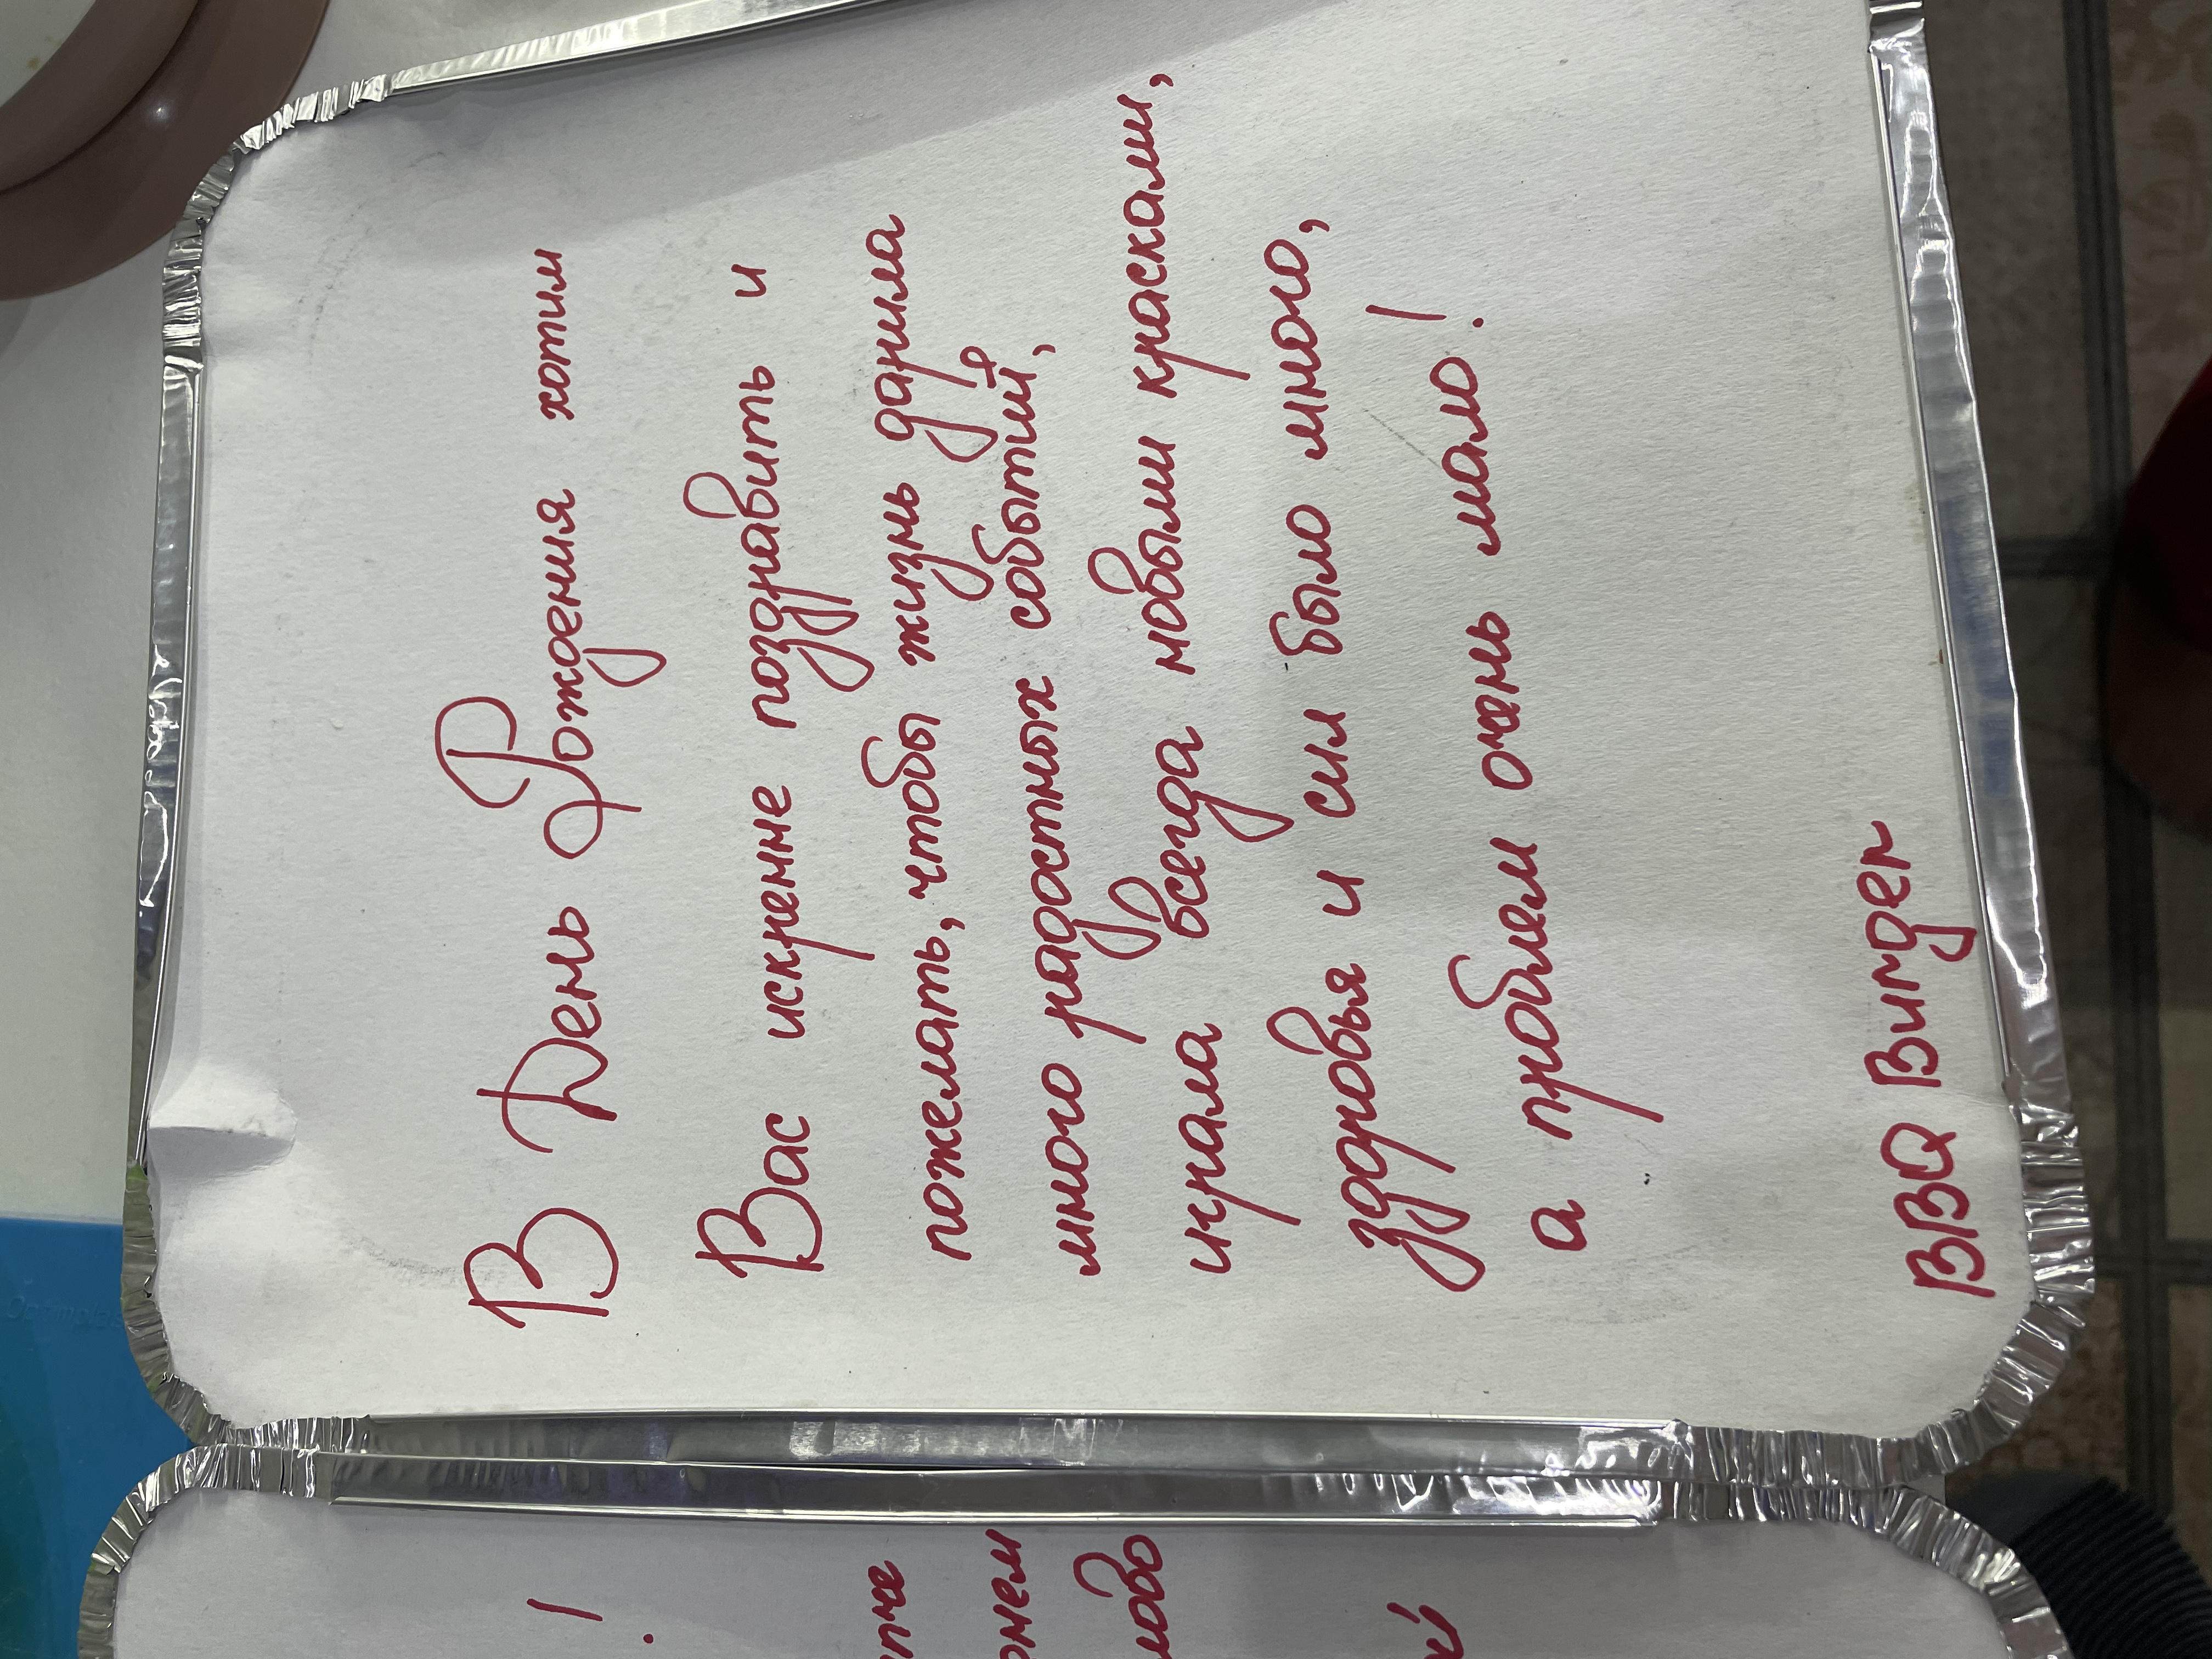 В День Рождения хотим
Вас искренне поздравить и
пожелать, чтобы жизнь дарила
много радостных событий,
играла всегда новыми красками,
здоровья и сил было много,
а проблем очень мало!
BBQ Burger
!